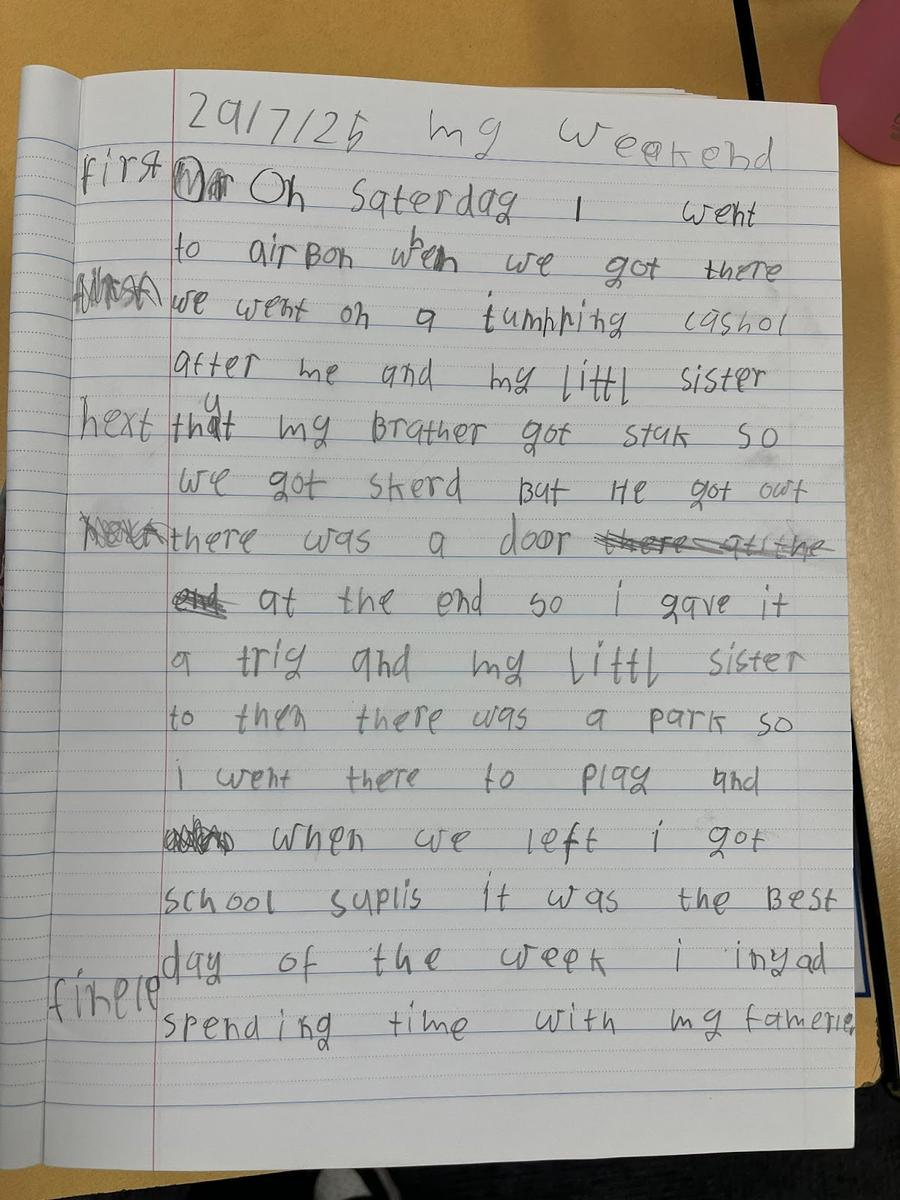 29/7/25 my Weekend
first On Saterday I went
to airBon when we got there
we went on a jumpping cashol
after me and my littl sister
next that my Brather got stuk so
we got skerd But He got owt
there was a door there at the
end at the end so i gave it
a triy and my littl sister
to then there was a park so
i went there to play and
when we left i got
school suplis it was the Best
day of the week i inyad
finele spending time with my famerie